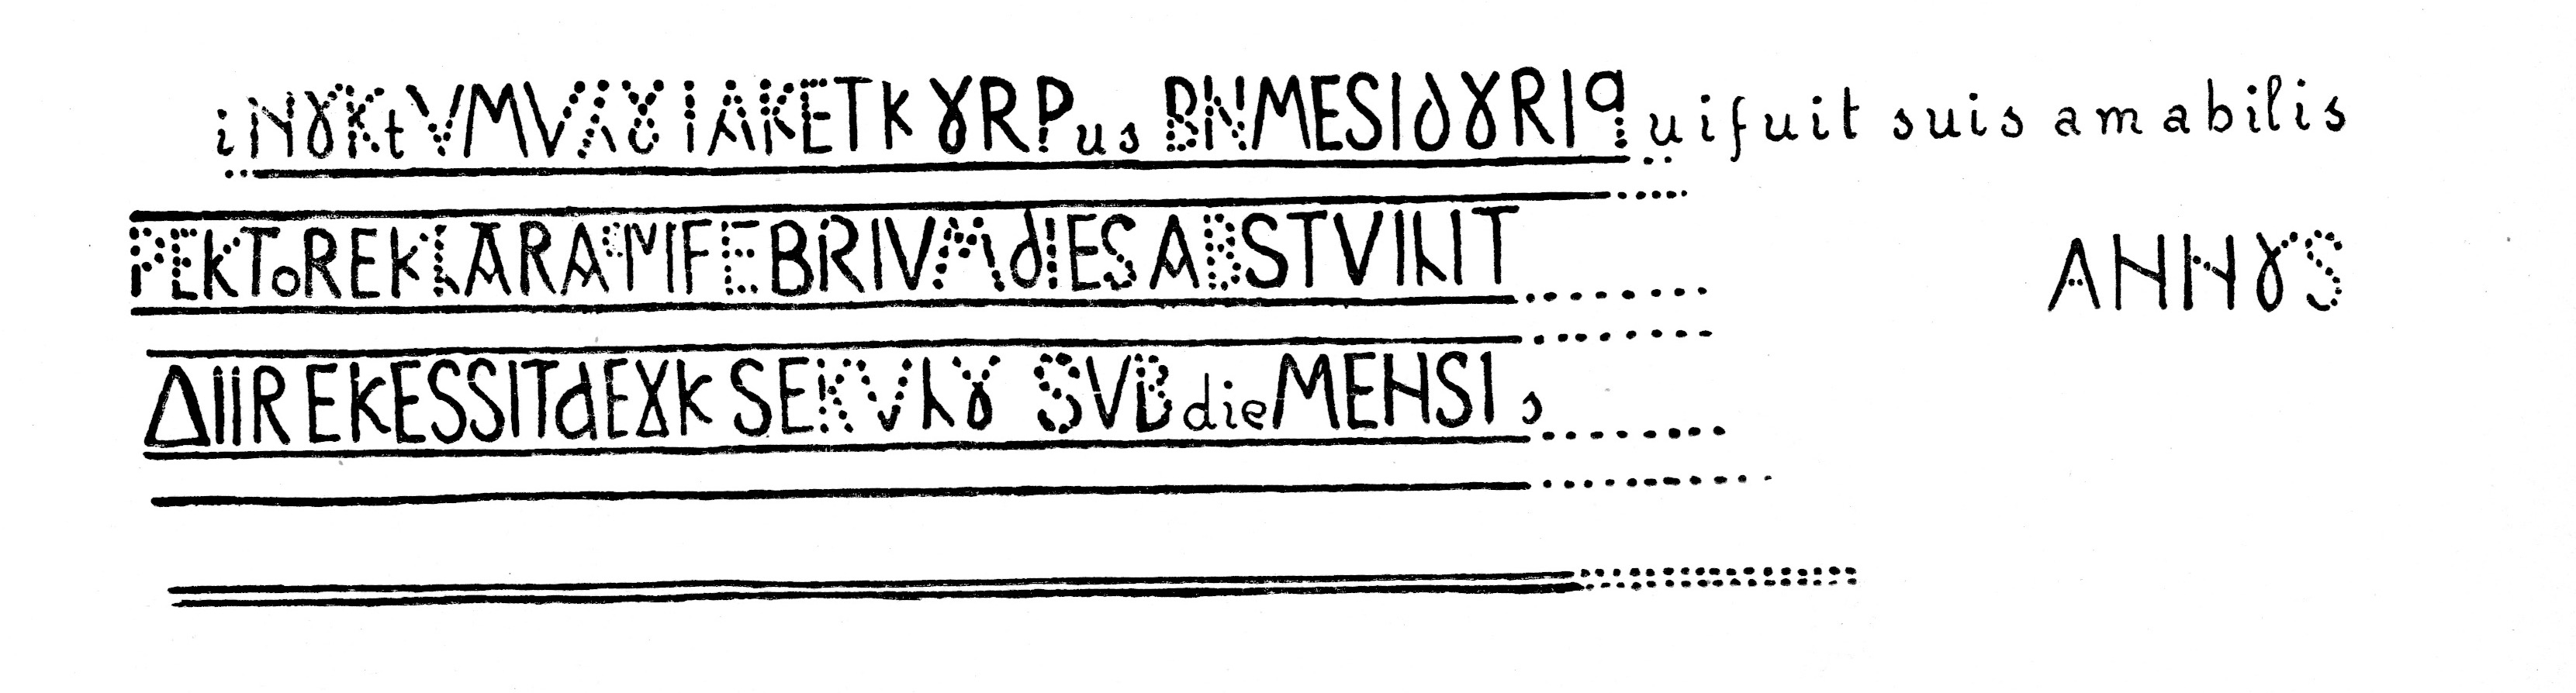 iNOKtVMVLOIAKETKORPus BNMESIdORIquifuit suis amabilis
PEKToREKLARAcNIFEBRIVMdIESABSTVILIT ANNOS
ΔIIREKESSITdEOKSEKVLO SVBdieMENSIs